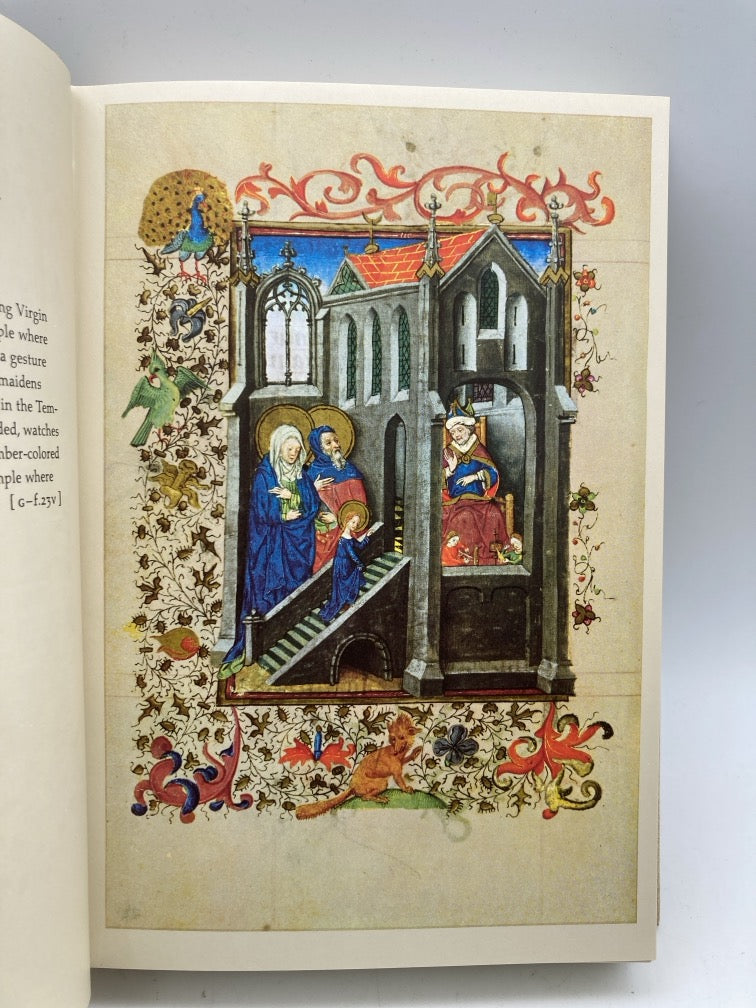 ng Virgin
ple where
a gesture
maidens
in the Tem-
ded, watches
mber-colored
mple where
[G–f.23v]